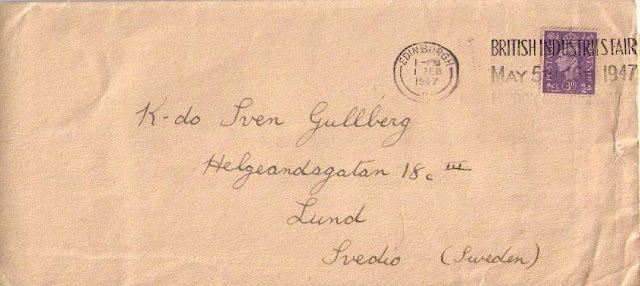 EDINBURGH
1 - PM
1 FEB
1947
BRITISH INDUSTRIES FAIR
MAY 5 1947
POSTAGE
3D
K-do Sven Gullberg
Helgeandsgatan 18c III
Lund
Svedio (Sweden)